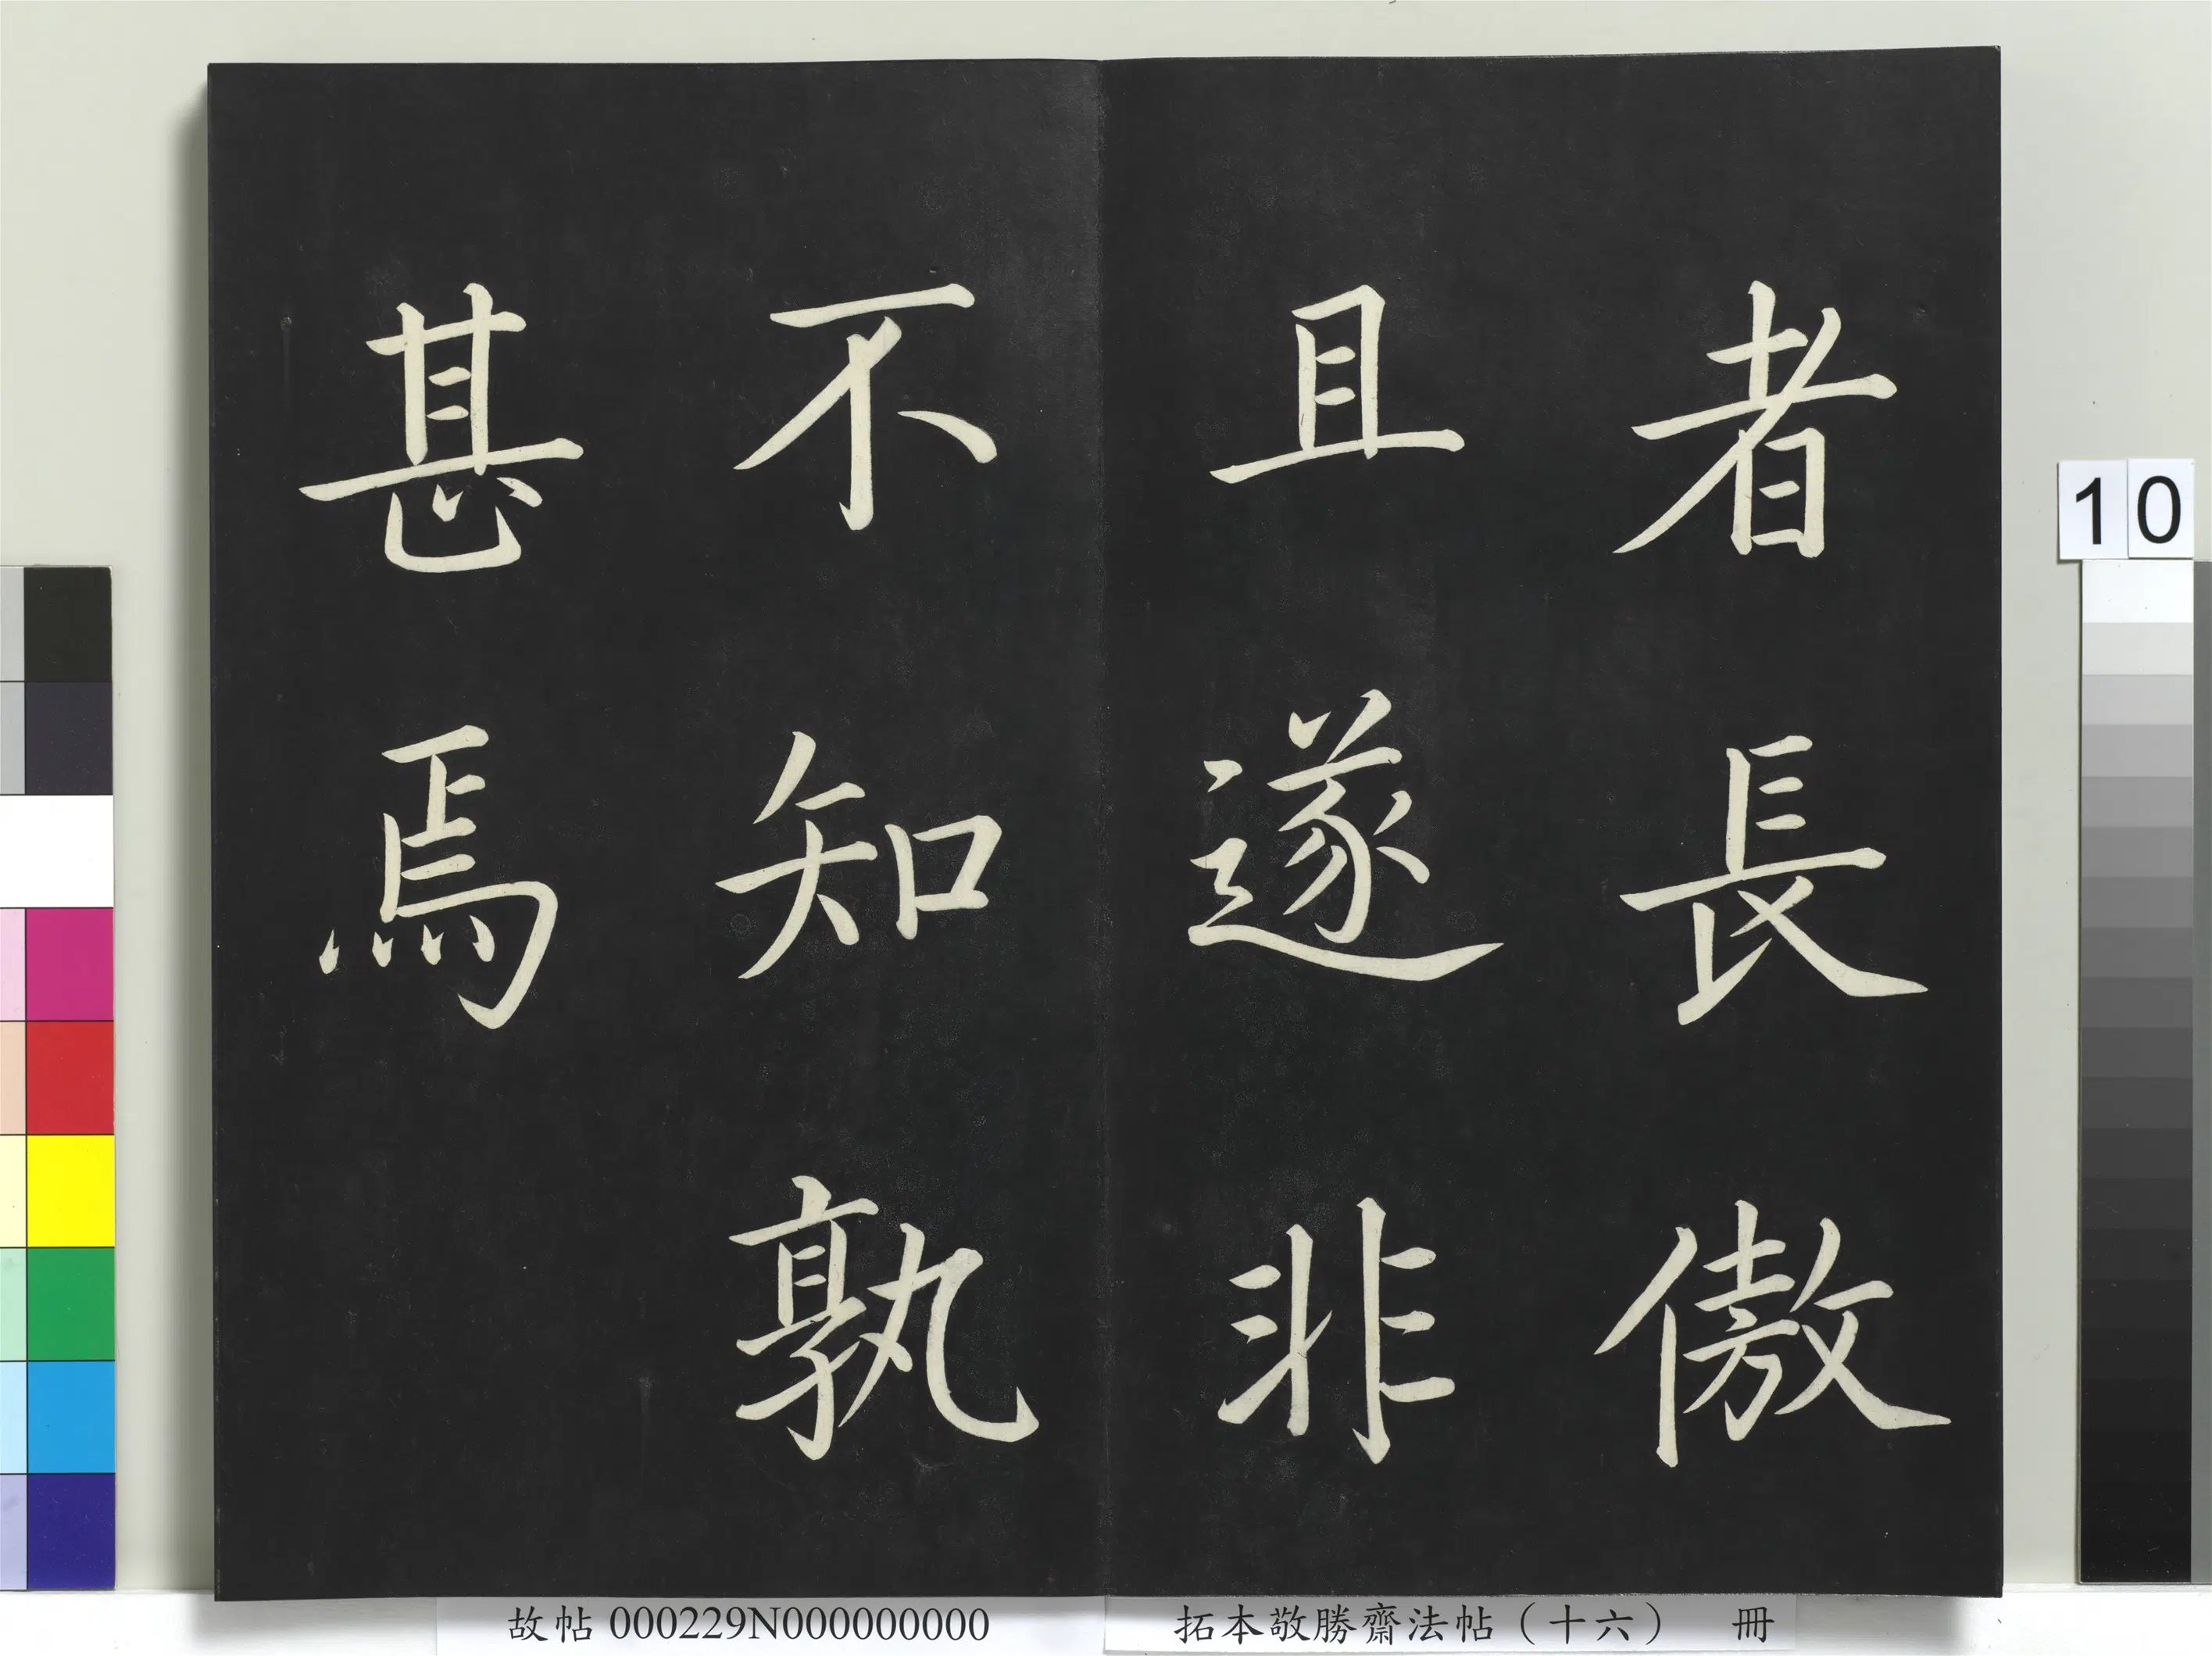 者長傲
且遂非
不知孰
甚焉
10
故帖 000229N000000000
拓本敬勝齋法帖（十六） 冊